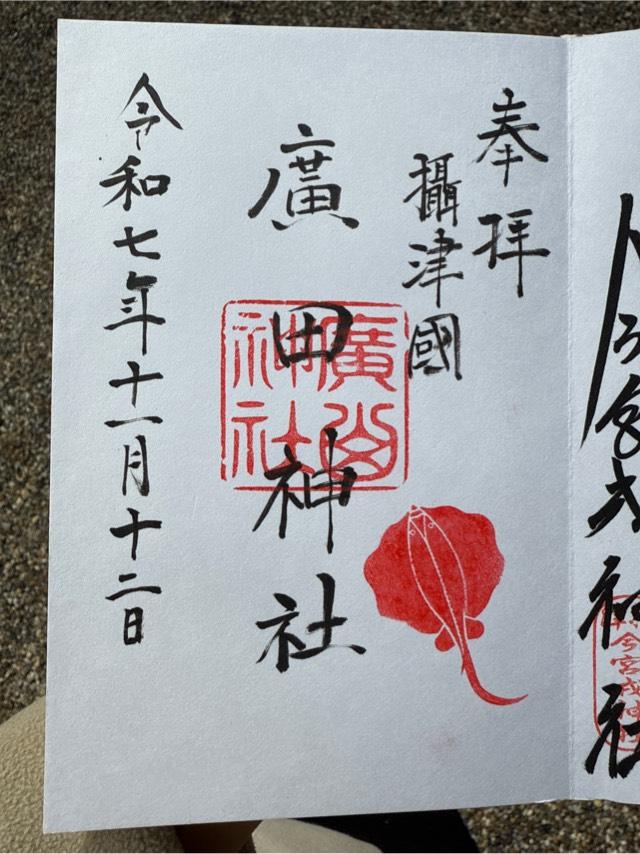 奉拝
攝津國
廣田神社
廣田神社
令和七年十一月十二日
今宮戎神社
今宮戎神社